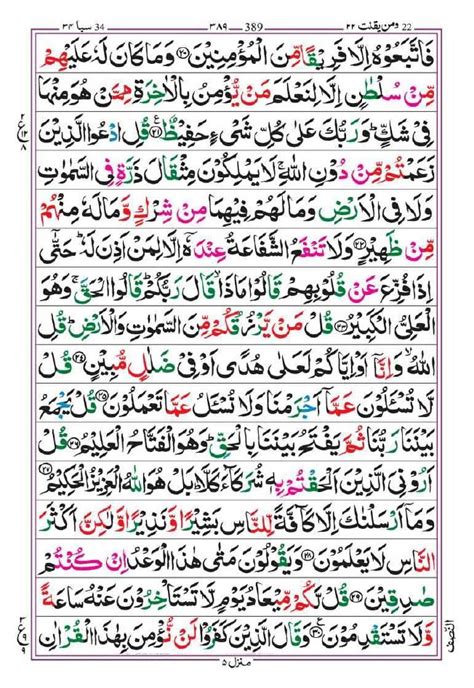 22 ومن يقنت ٢٢ 389 ٣٨٩ 34 سبا ٣٤
فَاتَّبَعُوْهُ اِلَّا فَرِيْقًا مِّنَ الْمُؤْمِنِيْنَ ۝۲۰ وَمَا كَانَ لَهٗ عَلَيْهِمْ
مِّنْ سُلْطٰنٍ اِلَّا لِنَعْلَمَ مَنْ يُّؤْمِنُ بِالْاٰخِرَةِ مِمَّنْ هُوَ مِنْهَا
فِيْ شَكٍّ ؕ وَرَبُّكَ عَلٰى كُلِّ شَيْءٍ حَفِيْظٌ ۝۲۱ قُلِ ادْعُوا الَّذِيْنَ
زَعَمْتُمْ مِّنْ دُوْنِ اللّٰهِ ۚ لَا يَمْلِكُوْنَ مِثْقَالَ ذَرَّةٍ فِي السَّمٰوٰتِ
وَلَا فِي الْاَرْضِ وَمَا لَهُمْ فِيْهِمَا مِنْ شِرْكٍ وَّمَا لَهٗ مِنْهُمْ
مِّنْ ظَهِيْرٍ ۝۲۲ وَلَا تَنْفَعُ الشَّفَاعَةُ عِنْدَهٗۤ اِلَّا لِمَنْ اَذِنَ لَهٗ ؕ حَتّٰۤى
اِذَا فُزِّعَ عَنْ قُلُوْبِهِمْ قَالُوْا مَاذَا ۙ قَالَ رَبُّكُمْ ؕ قَالُوا الْحَقَّ ۚ وَهُوَ
الْعَلِيُّ الْكَبِيْرُ ۝۲۳ قُلْ مَنْ يَّرْزُقُكُمْ مِّنَ السَّمٰوٰتِ وَالْاَرْضِ ؕ قُلِ
اللّٰهُ ۙ وَاِنَّاۤ اَوْ اِيَّاكُمْ لَعَلٰى هُدًى اَوْ فِيْ ضَلٰلٍ مُّبِيْنٍ ۝۲۴ قُلْ
لَّا تُسْـَٔلُوْنَ عَمَّاۤ اَجْرَمْنَا وَلَا نُسْـَٔلُ عَمَّا تَعْمَلُوْنَ ۝۲۵ قُلْ يَجْمَعُ
بَيْنَنَا رَبُّنَا ثُمَّ يَفْتَحُ بَيْنَنَا بِالْحَقِّ ؕ وَهُوَ الْفَتَّاحُ الْعَلِيْمُ ۝۲۶ قُلْ
اَرُوْنِيَ الَّذِيْنَ اَلْحَقْتُمْ بِهٖ شُرَكَآءَ كَلَّا ؕ بَلْ هُوَ اللّٰهُ الْعَزِيْزُ الْحَكِيْمُ ۝۲۷
وَمَاۤ اَرْسَلْنٰكَ اِلَّا كَآفَّةً لِّلنَّاسِ بَشِيْرًا وَّنَذِيْرًا وَّلٰكِنَّ اَكْثَرَ
النَّاسِ لَا يَعْلَمُوْنَ ۝۲۸ وَيَقُوْلُوْنَ مَتٰى هٰذَا الْوَعْدُ اِنْ كُنْتُمْ
صٰدِقِيْنَ ۝۲۹ قُلْ لَّكُمْ مِّيْعَادُ يَوْمٍ لَّا تَسْتَاْخِرُوْنَ عَنْهُ سَاعَةً
وَّلَا تَسْتَقْدِمُوْنَ ۝۳۰ وَقَالَ الَّذِيْنَ كَفَرُوْا لَنْ نُّؤْمِنَ بِهٰذَا الْقُرْاٰنِ
منزل ٥
النصف